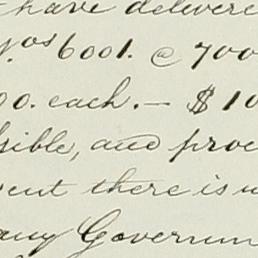 have delivere
Nos 6001. @ 700
00. each.— $10
sible, and proc
ent there is u
any Governm